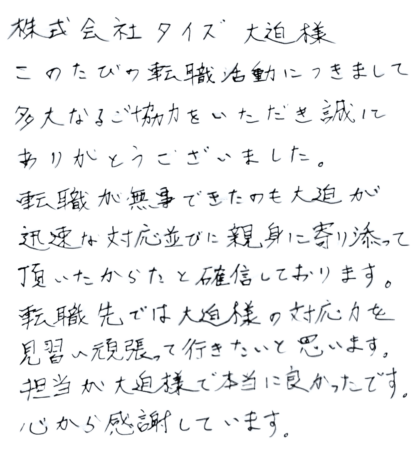 株式会社タイズ 大迫様
このたびの転職活動につきまして
多大なるご協力をいただき誠に
ありがとうございました。
転職が無事できたのも大迫が
迅速な対応並びに親身に寄り添って
頂いたからたと確信しております。
転職先では大迫様の対応力を
見習い頑張って行きたいと思います。
担当が大迫様で本当に良かったです。
心から感謝しています。